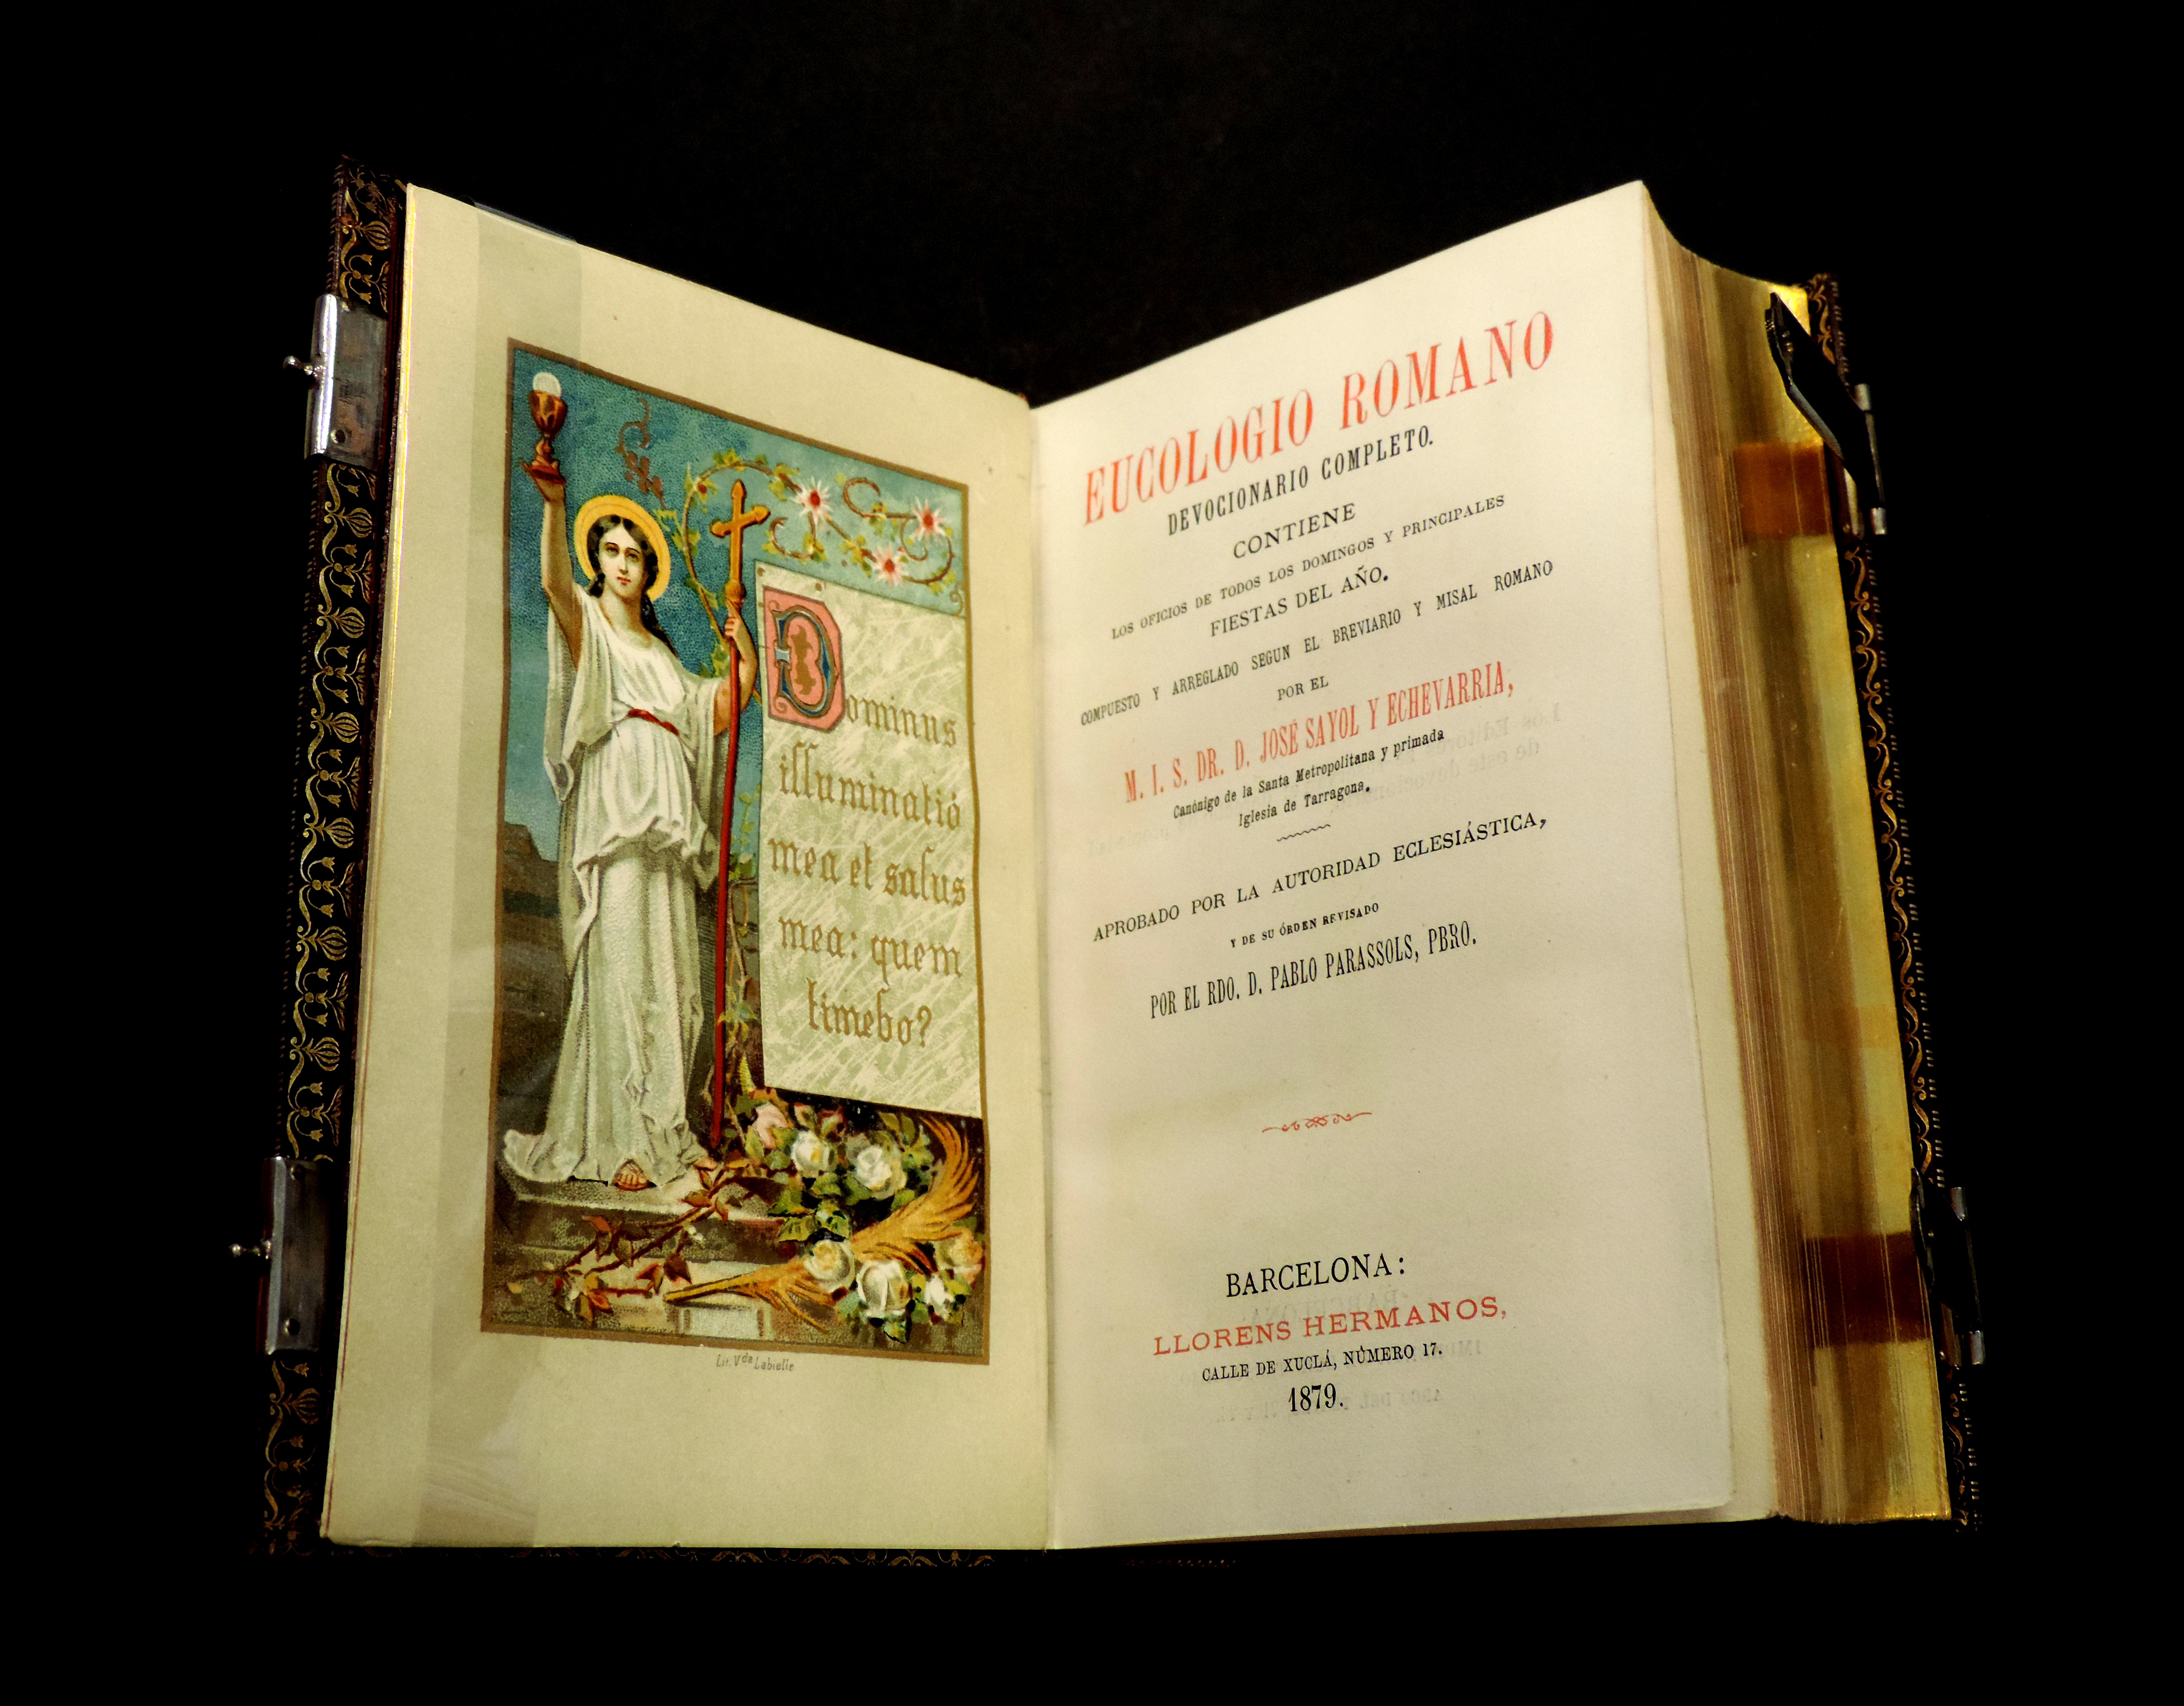 Dominus
illuminatió
mea et salus
mea: quem
timebo?
Lit. Vda Labielle
EUCOLOGIO ROMANO
DEVOCIONARIO COMPLETO.
CONTIENE
LOS OFICIOS DE TODOS LOS DOMINGOS Y PRINCIPALES
FIESTAS DEL AÑO.
COMPUESTO Y ARREGLADO SEGUN EL BREVIARIO Y MISAL ROMANO
POR EL
M. I. S. DR. D. JOSÉ SAYOL Y ECHEVARRIA,
Canónigo de la Santa Metropolitana y primada
Iglesia de Tarragona.
APROBADO POR LA AUTORIDAD ECLESIÁSTICA,
Y DE SU ÓRDEN REVISADO
POR EL RDO. D. PABLO PARASSOLS, PBRO.
BARCELONA:
LLORENS HERMANOS,
CALLE DE XUCLÁ, NÚMERO 17.
1879.